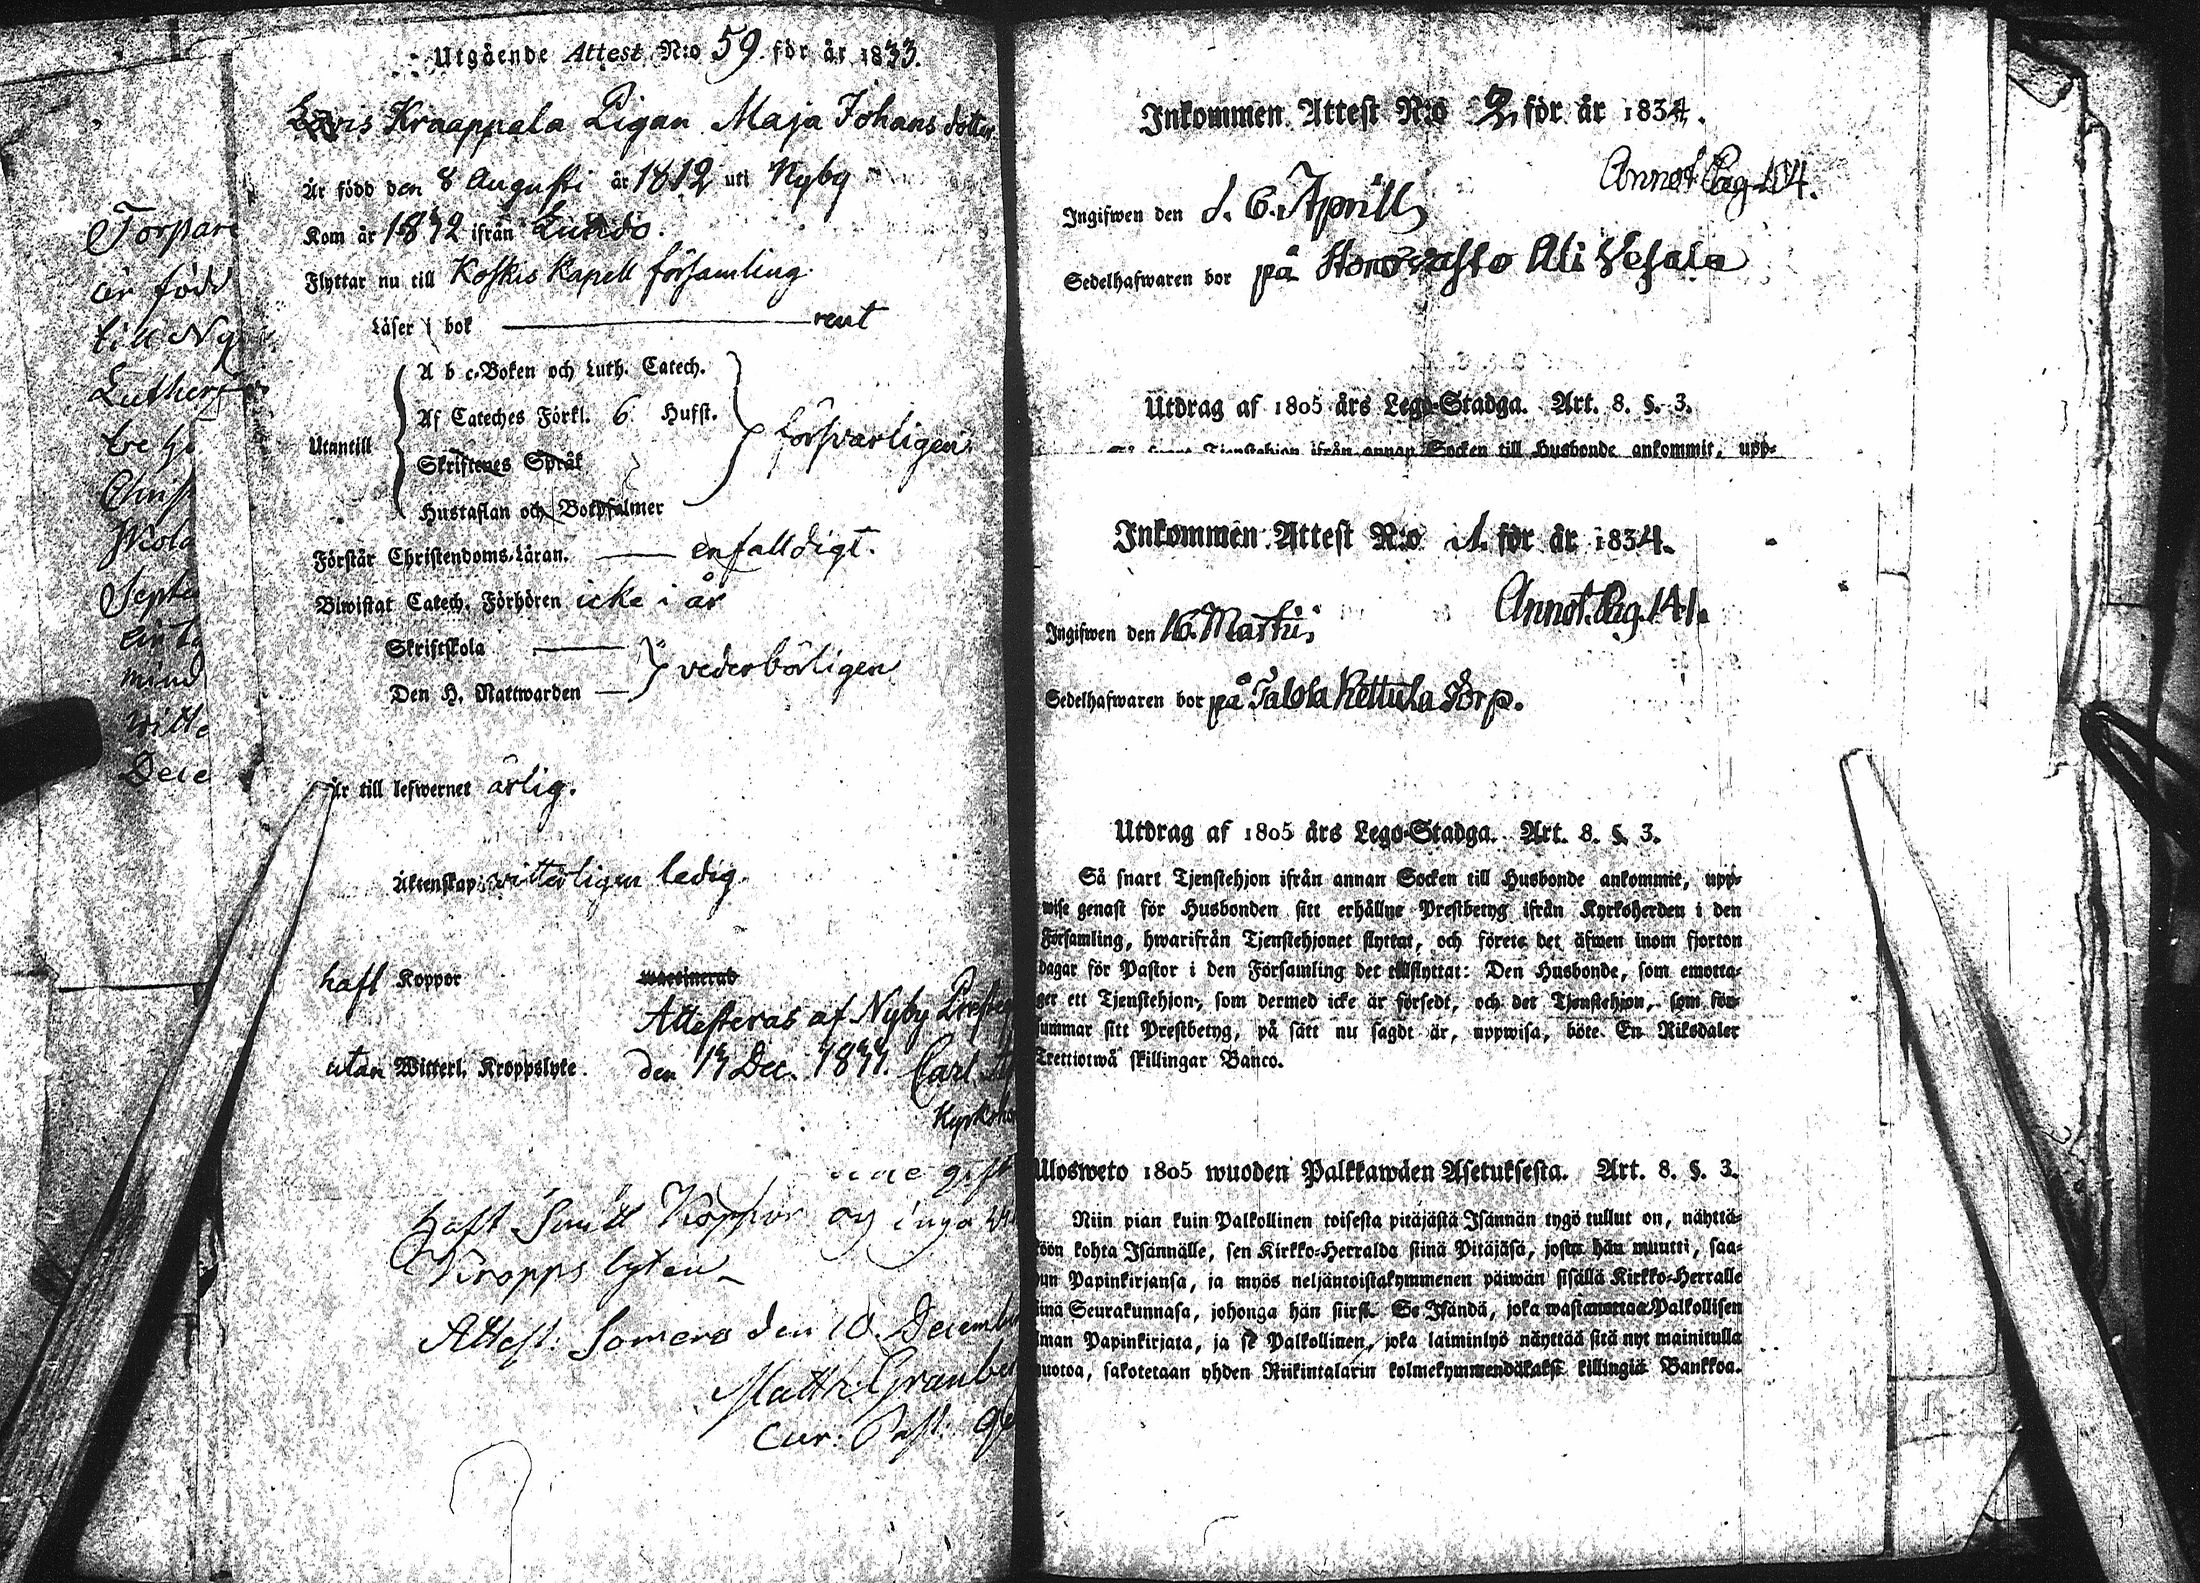 Utgående Attest N:o 59 för år 1833.
Kraappala Pigan Maja Johans dotter
Är född den 8 Augusti år 1812 uti Nyby
Kom år 1832 ifrån Lundo.
Flyttar nu till Koskis Kapell församling.
Läser i bok rent
A b c-Boken och Luth. Catech.
Af Cateches Förkl. 6 Hufst.
Utantill försvarligen
Skriftenes Språk
Hustaflan och Botpsalmer
Förstår Christendoms-Läran. enfalldigt.
Biwistat Catech. Förhören icke i år
Skriftskola
vederbörligen
Den H. Nattwarden
Är till lefwernet ärlig.
Äktenskap: vitterligen ledig.
haft Koppor vaccinerad
Attesteras af Nyby
utan Witterl. Kroppslyte. den 13 Dec. 1833. Carl
gift
haft Koppor og inga
Kropps lyten
Attest: Somero den 10. December
Matth: Granberg
Cur: Past:
Torpare
är född
till Ny
Luthers
tre
Christ
Septe
mind
vitte
Dece
Inkommen Attest N:o 2 för år 1834.
Annot. Pag. 104.
Ingifwen den d. 6. Aprill
Sedelhafwaren bor på Ali Vesala
Utdrag af 1805 års Lego-Stadga. Art. 8. §. 3.
Så snart Tjenstehjon ifrån annan Socken till Husbonde ankommit, upp-
Inkommen Attest N:o 1. för år 1834.
Annot. Pag. 141.
Ingifwen den 16. Martii,
Sedelhafwaren bor på Talola Kettula Torp.
Utdrag af 1805 års Lego-Stadga. Art. 8. §. 3.
Så snart Tjenstehjon ifrån annan Socken till Husbonde ankommit, upp-
wise genast för Husbonden sitt erhållne Prestbetyg ifrån Kyrkoherden i den
Församling, hwarifrån Tjenstehjonet flyttat, och förete det äfwen inom fjorton
dagar för Pastor i den Församling det tillflyttat: Den Husbonde, som emotta-
ger ett Tjenstehjon, som dermed icke är försedt, och det Tjenstehjon, som för-
summar sitt Prestbetyg, på sätt nu sagdt är, uppwisa, böte En Riksdaler
Trettiotwå skillingar Banco.
Ulosweto 1805 wuoden Palkkawäen Asetuksesta. Art. 8. §. 3.
Niin pian kuin Palkollinen toisesta pitäjästä Isännän tygö tullut on, näyttä-
köön kohta Isännälle, sen Kirkko-Herralda siinä Pitäjäsä, josta hän muutti, saa-
dun Papinkirjansa, ja myös neljäntoistakymmenen päiwän sisällä Kirkko-Herralle
siinä Seurakunnasa, johonga hän siirsi. Se Isändä, joka wastanottaa Palkollisen
ilman Papinkirjata, ja se Palkollinen, joka laiminlyö näyttää sitä nyt mainitulla
muotoa, sakotetaan yhden Riikintalarin kolmekymmendäkaksi killingiä Bankkoa.